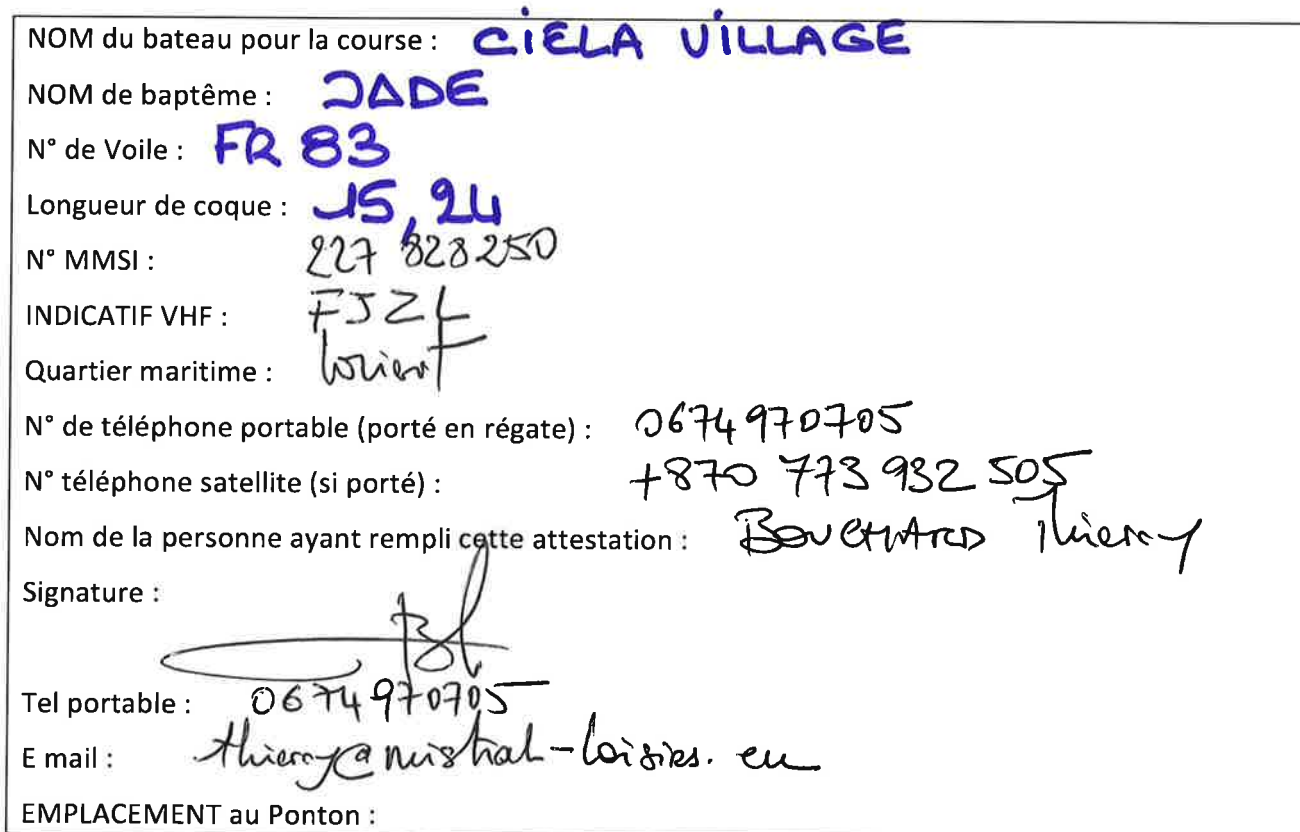 NOM du bateau pour la course : CIELA VILLAGE
NOM de baptême : JADE
N° de Voile : FR 83
Longueur de coque : 15,24
N° MMSI : 227 828 250
INDICATIF VHF : FJZL
Quartier maritime : Lorient
N° de téléphone portable (porté en régate) : 0674970705
N° téléphone satellite (si porté) : +870 773 932 505
Nom de la personne ayant rempli cette attestation : BOUCHARD Thierry
Signature :
Tel portable : 0674970705
E mail : thierry@mistral-loisirs.eu
EMPLACEMENT au Ponton :